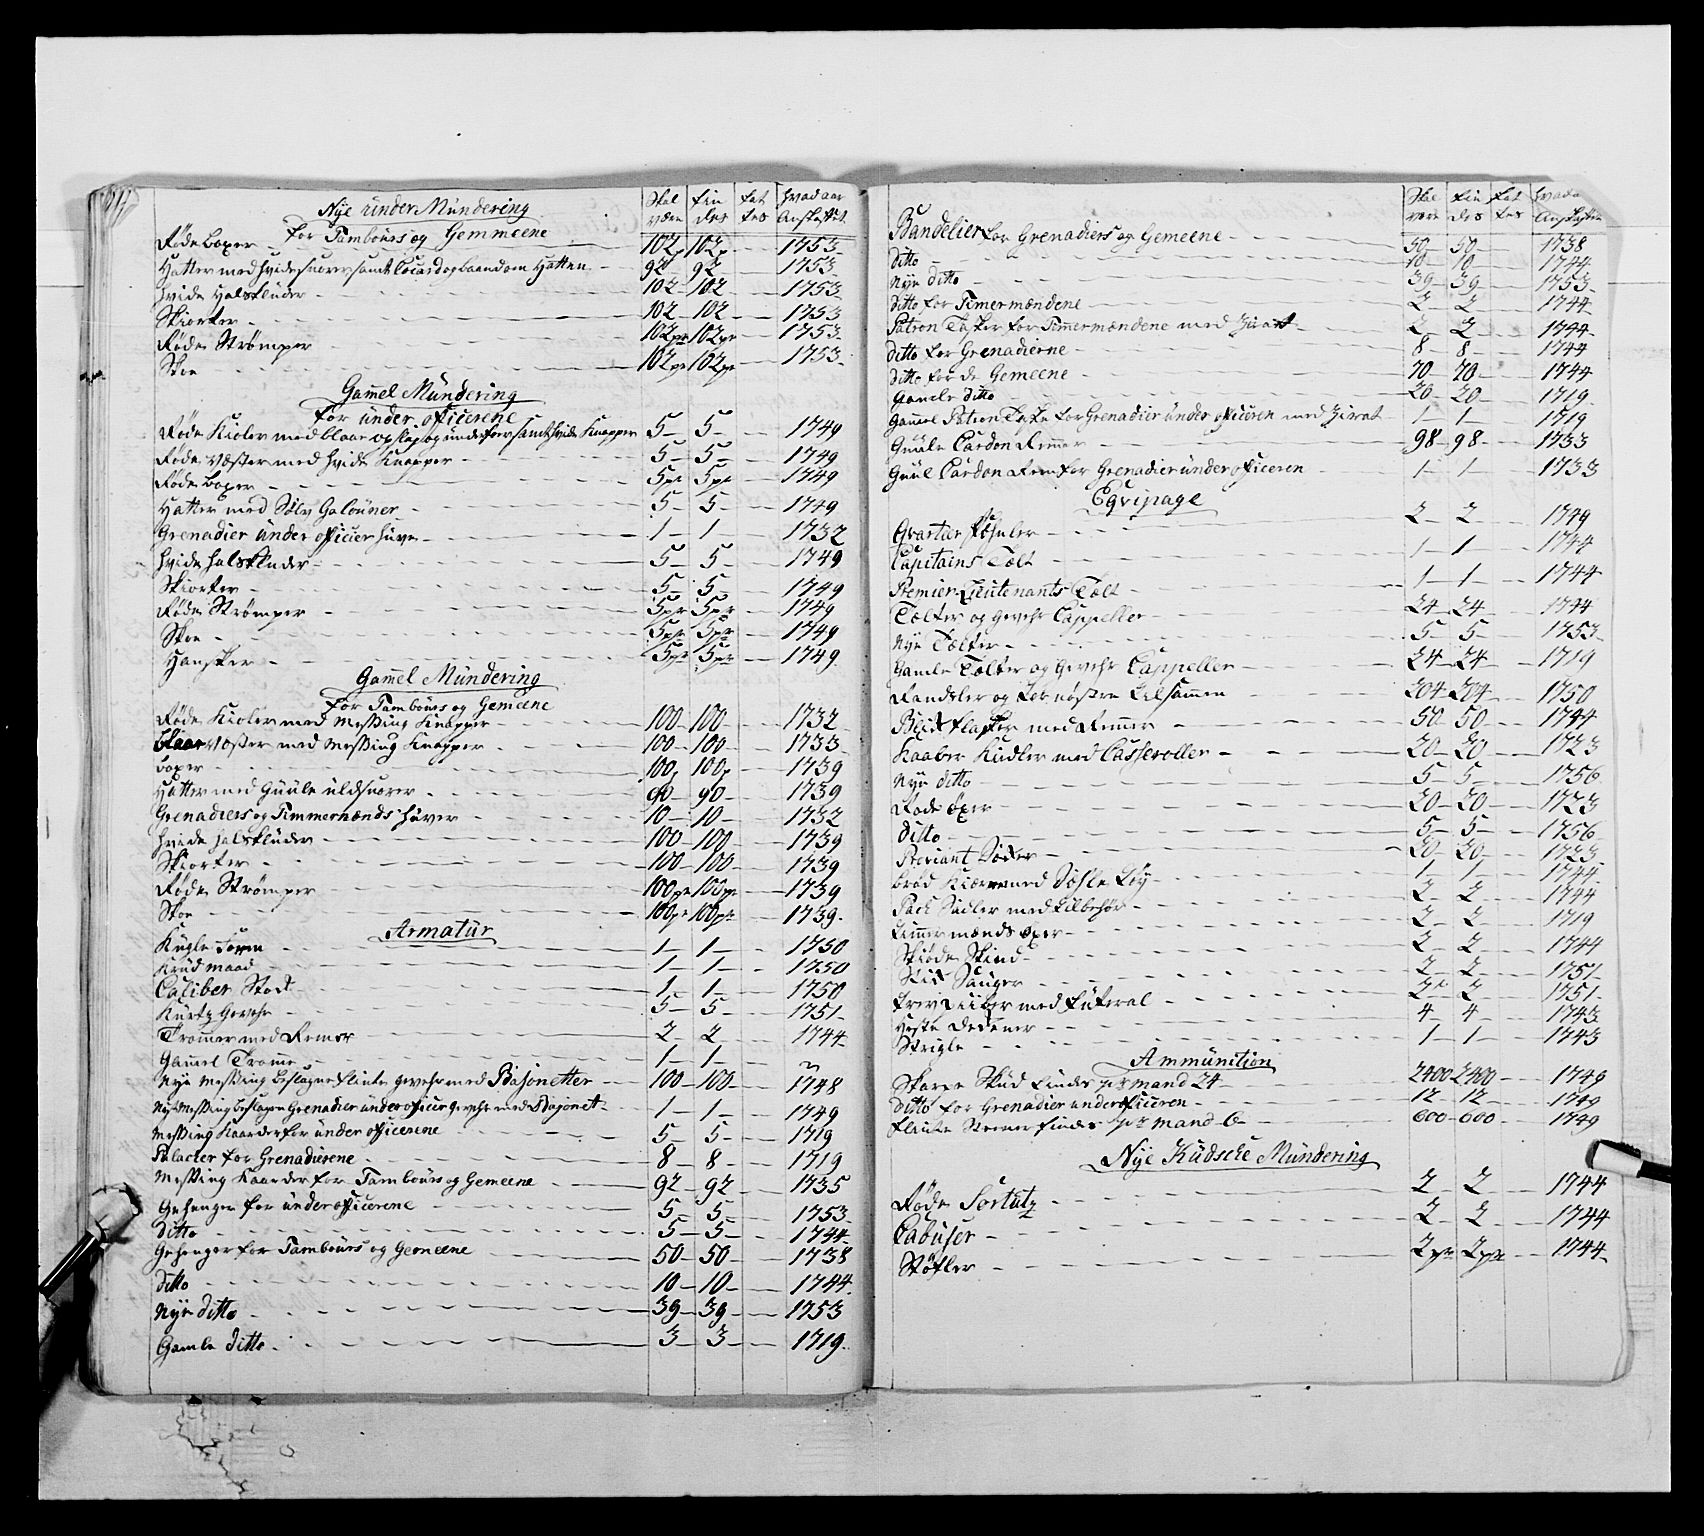 Skal være | Fin des | Fat tes | Hvad aar Anskaffet
Nye under Mundering
for Tambours og Gemmeene
Røde boxer 102p 102p 1753
Hatter med hvide snorer samt Cocard og baand om Hatten 92 92 1753
hvide Halsklüder 102 102 1753
Skiorter 102 102 1753
Røde Strømper 102pr 102pr 1753
Skoe 102pr 102pr 1753
Gamel Mündering
for under officerene
Røde Kioler med blaae opslag og underfoer samt hvide Knapper 5 5 1749
Røde Væster med hvide Knapper 5 5 1749
Røde boxer 5pr 5pr 1749
Hatter med Sølv Galouner 5 5 1749
Grenadier under officier huve 1 1 1732
hvide halsklüder 5 5 1749
Skiorter 5 5 1749
Røde Strømper 5pr 5pr 1749
Skoe 5pr 5pr 1749
Hansker 5pr 5pr 1749
Gamel Mündering
for Tambours og Gemeene
Røde Kioler med Messing Knapper 100 100 1732
blaae Væster med Messing Knapper 100 100 1733
boxer 100p 100p 1739
Hatter med Guule uldsnorer 90 90 1739
Grenadiers og Timmermænds huver 10 10 1732
hvide halsklüder 100 100 1739
Skiorter 100 100 1739
Røde Strømper 100pr 100pr 1739
Skoe 100pr 100pr 1739
Armatur
Kugle Form 1 1 1750
Krud maad 1 1 1750
Caliber Stok 1 1 1750
Kurtz Gevehr 5 5 1751
Trommer med Remer 2 2 1744
Gamel Tromme 1 1
Nye Messing beslagne flinte gevehr med Bajonetter 100 100 1748
Nye Messing beslagen Grenadier under officer gevehr med Bajonet 1 1 1749
Messing Kaarder for under officerene 5 5 1719
Palacker for Grenadierene 8 8 1719
Messing Kaarder for Tambours og Gemeene 92 92 1735
Gehenger for under officerene 5 5 1753
Ditto 5 5 1744
Gehenger for Tambours og Gemeene 50 50 1738
ditto 10 10 1744
Nye ditto 39 39 1753
Gamle ditto 3 3 1719
Skal være | Fin des | Fat tes | Hvad a Anskaffen
Bandelier for Grenadiers og Gemeene 50 50 1738
ditto 10 10 1744
Nye ditto 39 39 1753
Ditto for Timermændene 2 2 1744
Patron Tasker for Timmermændene med Zirat 2 2 1744
ditto for Grenadierne 8 8 1744
ditto for de Gemeene 70 70 1744
Gamle ditto 20 20 1719
Gamel Patron Taske for Grenadier under officeren med Zirat 1 1 1719
Guule Cardon Remer 98 98 1733
Guul Cardon Rem for Grenadier under officeren 1 1 1733
Eqvipage
Qvartier 2 2 1749
Capitains Tælt 1 1 1744
Premier Lieutenants Tælt 1 1 1744
Tælter og gevehr Cappeller 24 24 1744
Nye Tælter 5 5 1753
Gamle Tælter og Gevehr Cappeller 24 24 1719
Randsler og tilsammen 204 204 1750
Blik flasker med Remer 50 50 1744
Kaaber Kiedler med Casseroller 20 20 1723
Nye ditto 5 5 1756
Røde øxer 20 20 1723
Ditto 5 5 1756
Proviant 20 20 1723
brød Kiærre med Tøy 1 1 1744
Pack Sadler med tilbehør 2 2 1744
timmermænds øxer 2 2 1719
Skiøde Skind 2 2 1744
Sauger 2 2 1751
med Futeral 2 2 1751
Heste Dekener 4 4 1743
Strigle 1 1 1743
Ammunition
Skarpe Skud findes pr mand 24 2400 2400 1749
ditto for Grenadier underofficeren 12 12 1749
flinte Steene findes pr mand 6 600 600 1749
Nye Kudsche Mündering
Røde Sortutz 2 2 1744
Cabuser 2 2 1744
Støfler 2pr 2pr 1744